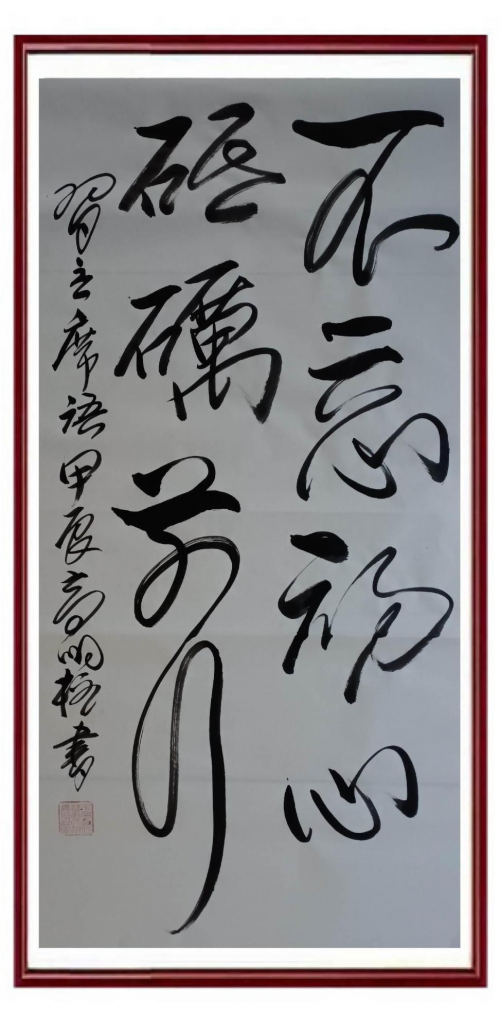 不忘初心
砥礪前行
習主席語甲辰高明極書